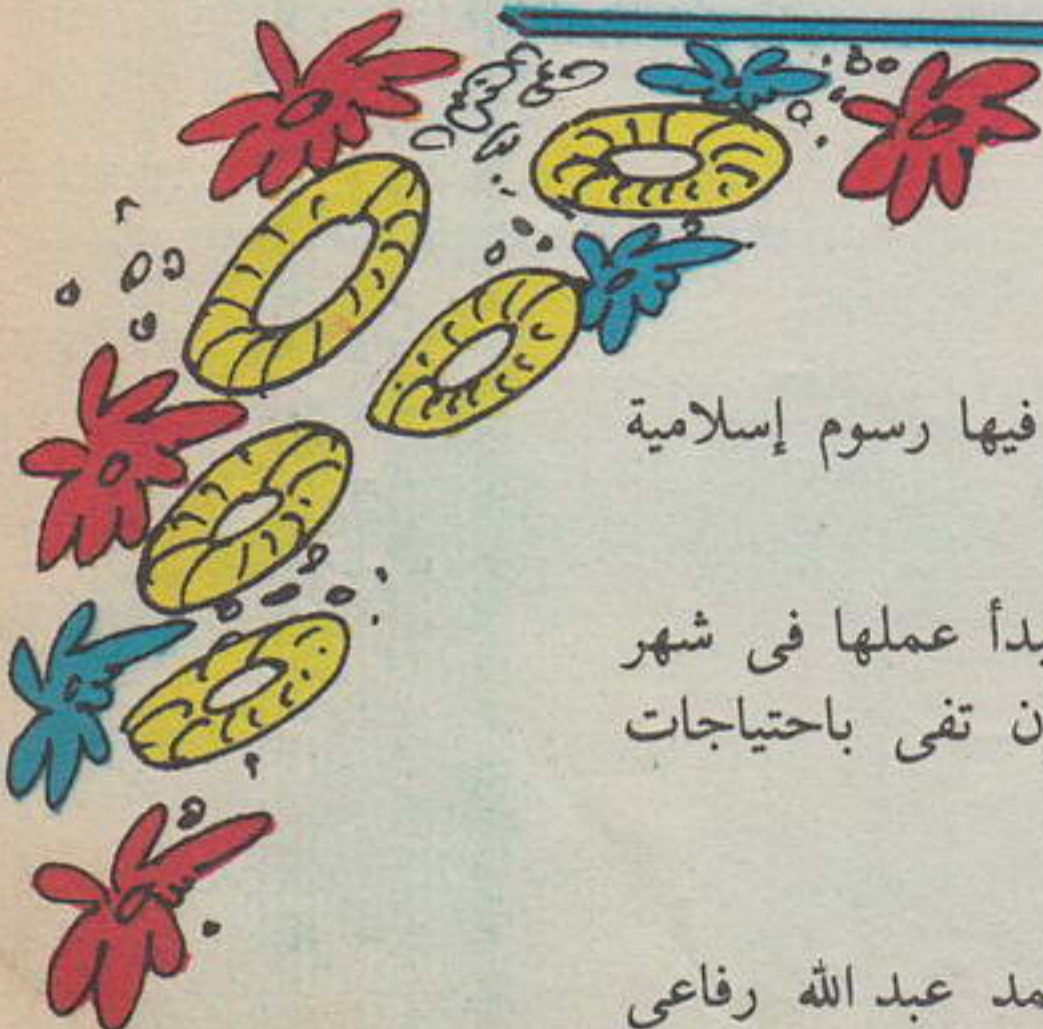 فيها رسوم إسلامية
بدأ عملها فى شهر
ن تفى باحتياجات
مد عبد الله رفاعى